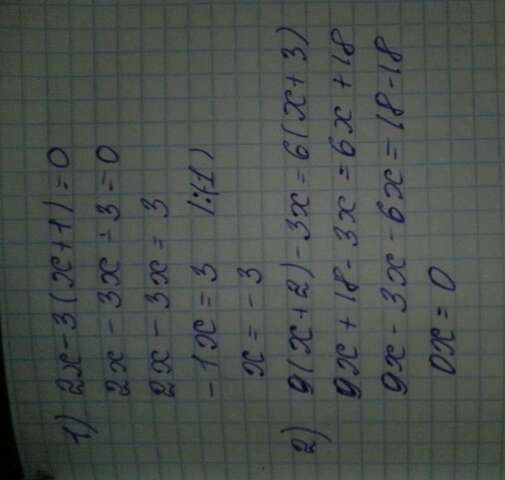 1) 2x - 3(x+1) = 0
2x - 3x - 3 = 0
2x - 3x = 3
-1x = 3 |:(-1)
x = -3
2) 9(x+2) - 3x = 6(x+3)
9x + 18 - 3x = 6x + 18
9x - 3x - 6x = 18 - 18
0x = 0